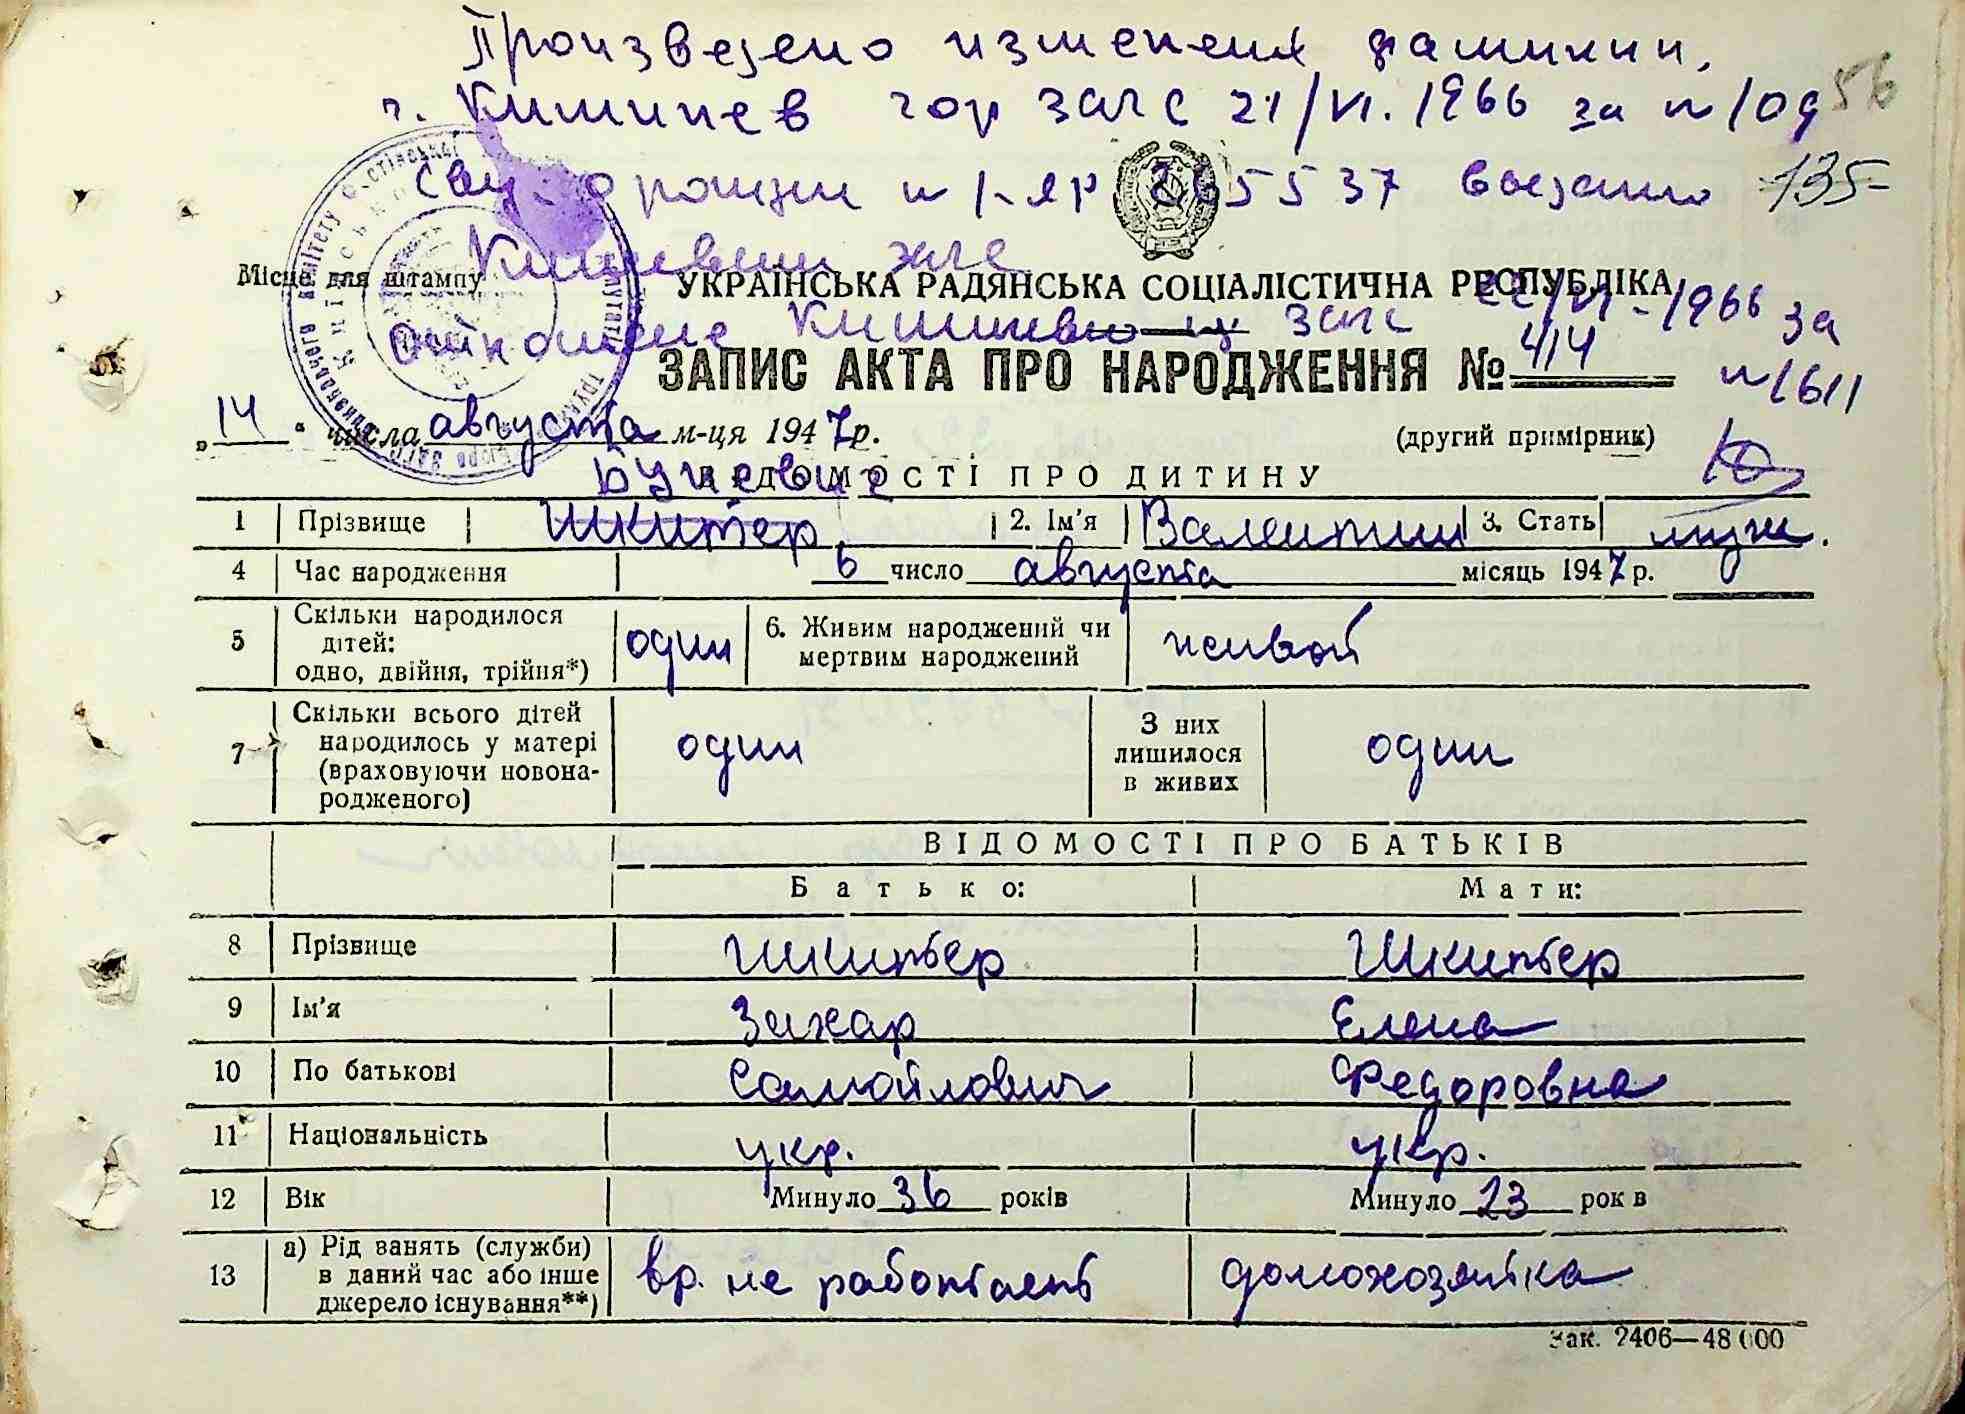 Произведено изменения фамилии,
г. Кишинев гор загс 21/VI. 1966 за № 109
56
135
Місце для штампу
УКРАЇНСЬКА РАДЯНСЬКА СОЦІАЛІСТИЧНА РЕСПУБЛІКА
загс 22/VI - 1966 за
№ 1611
ЗАПИС АКТА ПРО НАРОДЖЕННЯ № 414
„14" числа августа м-ця 1947 р. (другий примірник)
ВІДОМОСТІ ПРО ДИТИНУ
1 Прізвище Шкитер 2. Ім'я Валентин 3. Стать муж.
4 Час народження 6 число августа місяць 1947 р.
5 Скільки народилося дітей: одно, двійня, трійня*) один 6. Живим народжений чи мертвим народжений живой
7 Скільки всього дітей народилось у матері (враховуючи новонародженого) один З них лишилося в живих один
ВІДОМОСТІ ПРО БАТЬКІВ
Батько: Мати:
8 Прізвище Шкитер Шкитер
9 Ім'я Захар Елена
10 По батькові Самойлович Федоровна
11 Національність укр. укр.
12 Вік Минуло 36 років Минуло 23 рок в
13 а) Рід занять (служби) в даний час або інше джерело існування**) вр. не работает домохозяйка
Зак. 2406—48 000